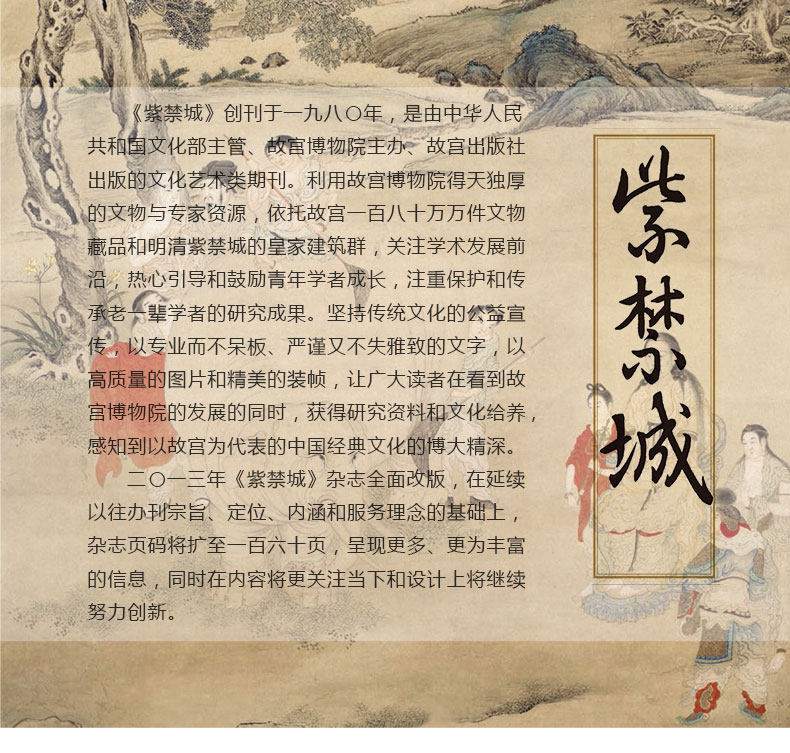 《紫禁城》创刊于一九八〇年，是由中华人民
共和国文化部主管、故宫博物院主办、故宫出版社
出版的文化艺术类期刊。利用故宫博物院得天独厚
的文物与专家资源，依托故宫一百八十万万件文物
藏品和明清紫禁城的皇家建筑群，关注学术发展前
沿，热心引导和鼓励青年学者成长，注重保护和传
承老一辈学者的研究成果。坚持传统文化的公益宣
传，以专业而不呆板、严谨又不失雅致的文字，以
高质量的图片和精美的装帧，让广大读者在看到故
宫博物院的发展的同时，获得研究资料和文化给养，
感知到以故宫为代表的中国经典文化的博大精深。
二〇一三年《紫禁城》杂志全面改版，在延续
以往办刊宗旨、定位、内涵和服务理念的基础上，
杂志页码将扩至一百六十页，呈现更多、更为丰富
的信息，同时在内容将更关注当下和设计上将继续
努力创新。
紫禁城